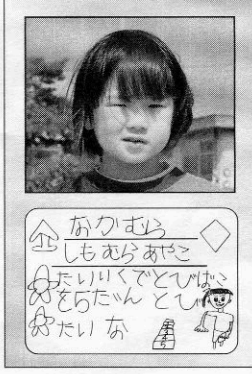 なかむら
しもむらあやこ
たいいくでとびばこ
を5だん とび
たい な